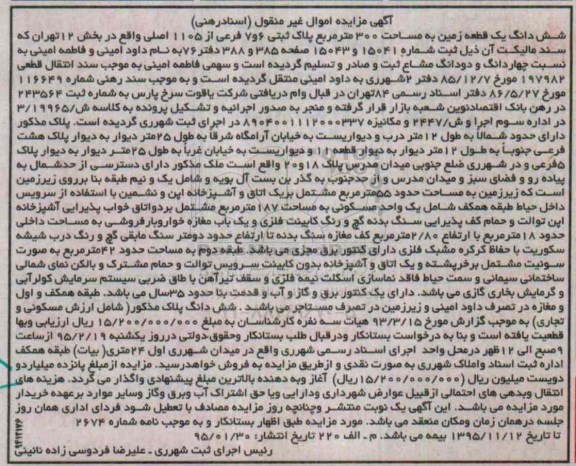 آگهی مزایده اموال غیر منقول (اسنادرهنی)
شش دانگ یک قطعه زمین به مساحت ۳۰۰ مترمربع پلاک ثبتی ۷و۶ فرعی از ۱۱۰۵ اصلی واقع در بخش ۱۲ تهران که
سند مالکیت آن ذیل ثبت شماره ۱۵۰۴۱ و ۱۵۰۴۳ صفحه ۳۸۵ و ۳۸۸ دفتر ۷۶ به نام داود امینی و فاطمه امینی به
نسبت چهاردانگ و دودانگ مشاع ثبت و صادر و تسلیم گردیده است و سهمی فاطمه امینی به موجب سند انتقال قطعی
۱۹۷۹۸۲ مورخ ۸۵/۱۲/۷ دفتر ۲شهرری به داود امینی منتقل گردیده است و به موجب سند رهنی شماره ۱۱۶۶۴۹
مورخ ۸۶/۵/۲۷ دفتر اسناد رسمی ۸۴تهران در قبال وام دریافتی شرکت یاقوت سرخ پارس به شماره ثبت ۲۴۳۵۶۴
در رهن بانک اقتصادنوین شعبه بازار قرار گرفته و منجر به صدور اجرائیه و تشکیل پرونده به کلاسه ش/۳/۱۹۹۶۵
در اداره سوم اجرا و ش/۲۴۴۷ و مکانیزه ۸۹۰۴۰۰۱۱۱۲۰۰۰۳۳۷ در اجرای ثبت شهرری گردیده است. پلاک مذکور
دارای حدود شمالاً به طول ۱۲متر درب و دیواریست به خیابان آرامگاه شرقاً به طول ۲۵متر دیوار به دیوار پلاک هشت
فرعی جنوباً به طول ۱۲متر دیوار به دیوار قطعه ۱۱ و دیواریست به خیابان غرباً به طول ۲۵متر دیوار به دیوار پلاک
۵فرعی و در شهرری ضلع جنوبی میدان مدرس پلاک ۱۸و۲۰ واقع است ملک مذکور دارای دسترسی از حدشمال به
پیاده رو و فضای سبز و میدان مدرس و از حدجنوب به گذر بن بست آل بویه و شامل یک و نیم طبقه بنا برروی زیرزمین
است که زیرزمین به مساحت حدود ۵۵مترمربع مشتمل بریک اتاق و آشپزخانه اپن و نشیمن با استفاده از سرویس
داخل حیاط طبقه همکف شامل یک واحد مسکونی به مساحت ۱۸۷مترمربع مشتمل بردواتاق خواب پذیرایی آشپزخانه
اپن توالت و حمام کف پذیرایی سنگ بدنه گچ و رنگ کابینت فلزی و یک باب مغازه خواروبارفروشی به مساحت داخلی
حدود ۱۸مترمربع با ارتفاع ۲/۸۰مترمربع کف مغازه سنگ بدنه تا ارتفاع حدود دومتر سنگ مابقی گچ و رنگ درب شیشه
سکوریت با حفاظ کرکره مشبک فلزی دارای کنتور برق مجزی می باشد. طبقه دوم به مساحت حدود ۴۲مترمربع به صورت
سوئیت مشتمل برخرپشته و یک اتاق و آشپزخانه بدون کابینت سرویس توالت و حمام مشترک و بالکن نمای شمالی
ساختمانی سیمانی و سمت حیاط فاقد نماسازی اسکلت نیمه فلزی و سقف تیرآهن با طاق ضربی سیستم سرمایش کولرآبی
و گرمایش بخاری گازی می باشد. دارای یک کنتور برق و گاز و آب و قدمت بنا حدود ۳۵سال می باشد. طبقه همکف و اول
و مغازه در تصرف داود امینی و زیرزمین در تصرف مستاجر می باشد. شش دانگ پلاک مذکور (شامل ارزش مسکونی و
تجاری) به موجب گزارش مورخ ۹۳/۳/۱۵ هیات سه نفره کارشناسان به مبلغ ۱۵/۲۰۰/۰۰۰/۰۰۰ ریال ارزیابی وبها
قطعیت یافته است و بنا به درخواست بستانکار ودرقبال طلب بستانکار وحقوق دولتی درروز یکشنبه ۹۵/۲/۱۹ ازساعت
۹صبح الی ۱۲ظهر درمحل واحد اجرای اسناد رسمی شهرری واقع در میدان شهرری اول ۲۴متری(بیات) طبقه همکف
اداره ثبت اسناد واملاک شهرری به صورت نقدی و ازطریق مزایده به فروش خواهدرسید. مزایده ازمبلغ پانزده میلیاردو
دویست میلیون ریال (۱۵/۲۰۰/۰۰۰/۰۰۰ریال) آغاز وبه دهنده بالاترین مبلغ پیشنهادی واگذار می گردد. هزینه های
انتقال وبدهی های احتمالی ازقبیل عوارض شهرداری ودارایی ویا حق اشتراک آب وبرق وگاز وسایر موارد برعهده خریدار
مورد مزایده می باشد. این آگهی یک نوبت منتشر وچنانچه روز مزایده مصادف با تعطیل شود فردای اداری همان روز
جلسه درهمان زمان ومکان منعقد می باشد. مورد مزایده طبق اظهار بستانکار و به موجب نامه شماره ۲۶۷۴
تا تاریخ ۱۳۹۵/۱۱/۱۲ بیمه می باشد. م ـ الف ۲۲۰ تاریخ انتشار: ۹۵/۰۱/۳۰
رئیس اجرای ثبت شهرری ـ علیرضا فردوسی زاده نائینی